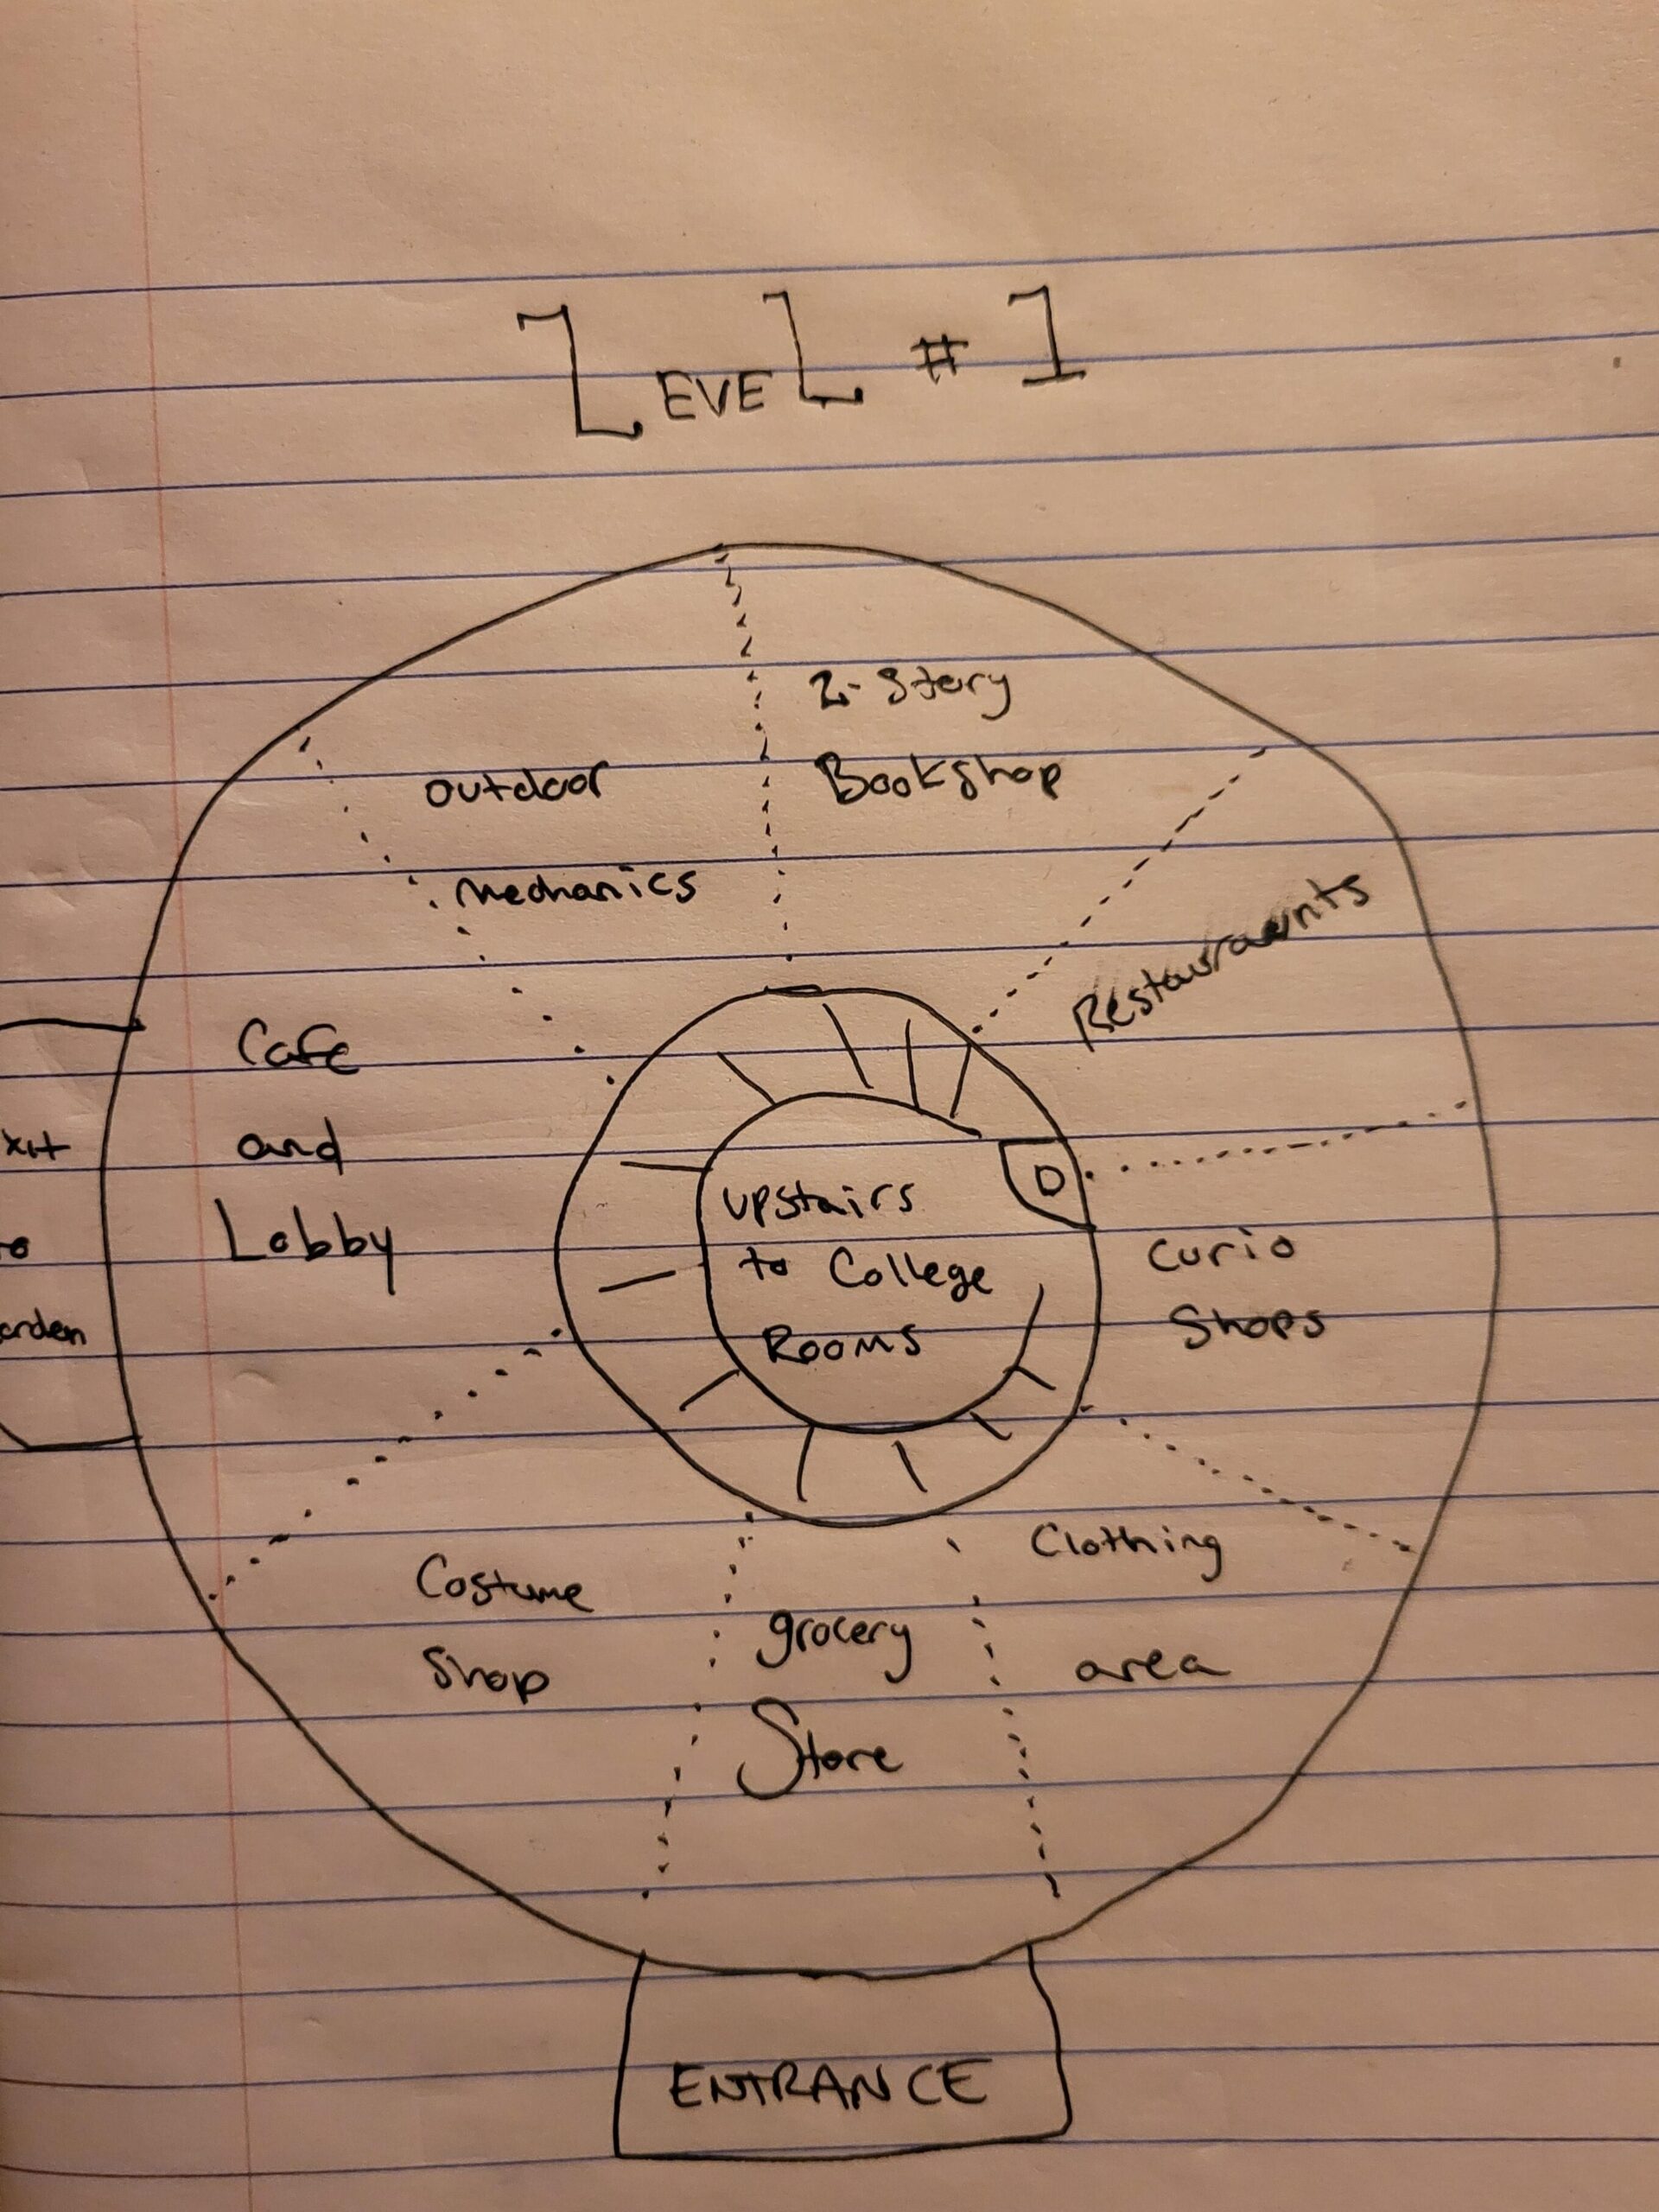 LEVEL #1
2-Story
Bookshop
outdoor
mechanics
Restauraents
Cafe
and
Lobby
xit
o
arden
D
upstairs
to College
Rooms
Curio
Shops
Costume
Shop
grocery
Store
Clothing
area
ENTRANCE